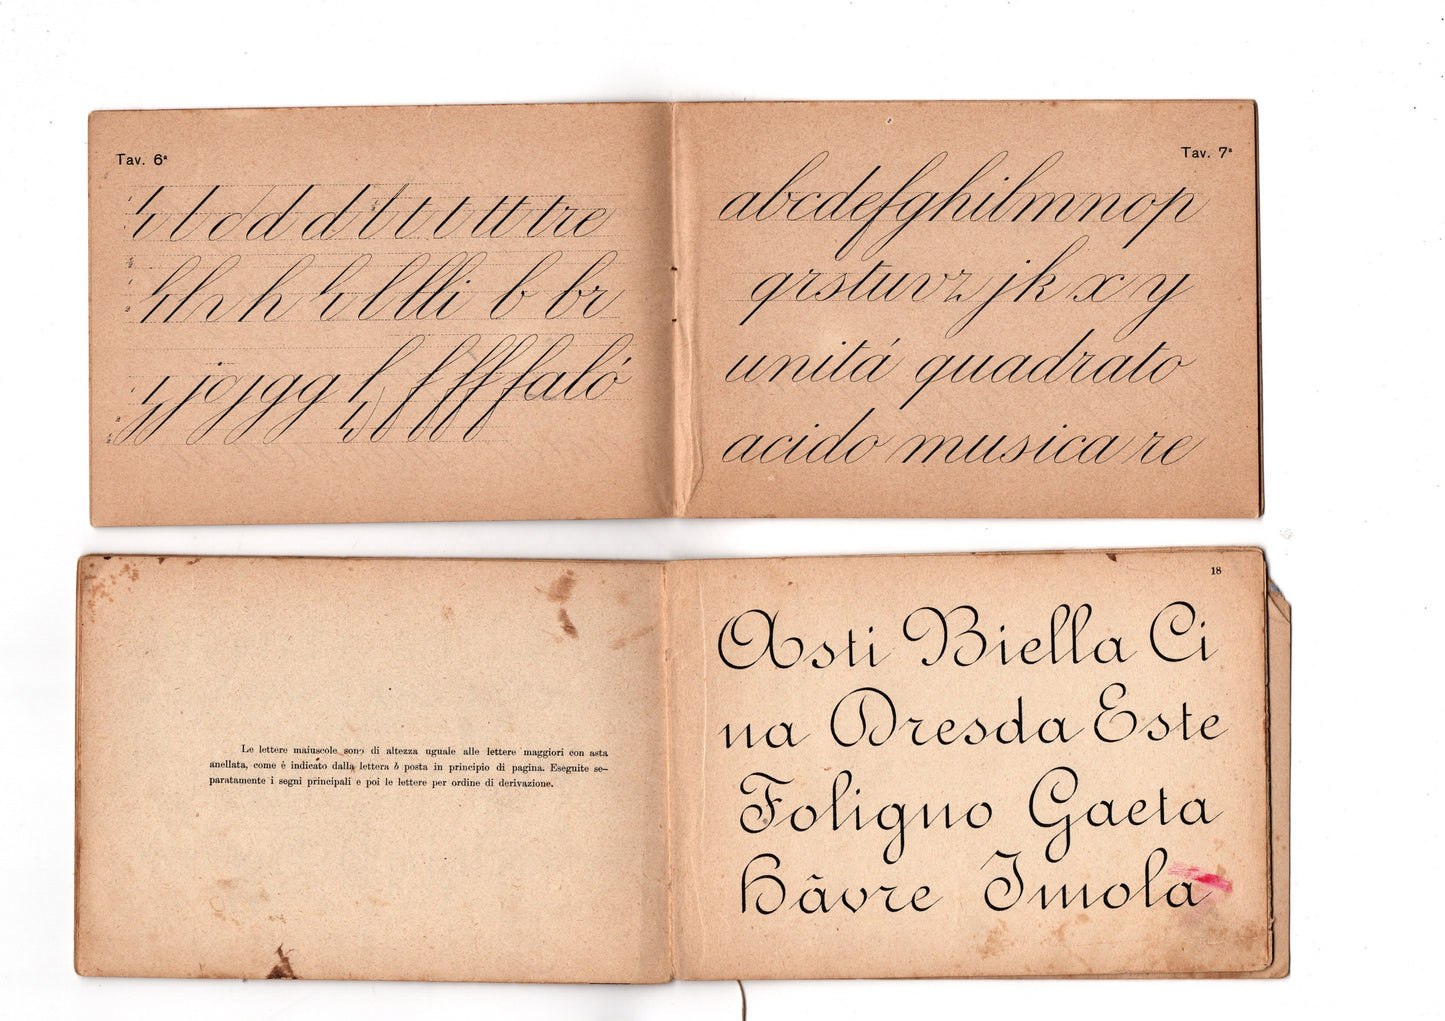 Tav. 6ª
t t d d d t t t tt tre
h h h l l lli b br
j g j g g f f ff faló
Tav. 7ª
abcdefghilmnop
qrstuvz jk x y
unitá quadrato
acido musica re
Le lettere maiuscole sono di altezza uguale alle lettere maggiori con asta
anellata, come è indicato dalla lettera b posta in principio di pagina. Eseguite se-
paratamente i segni principali e poi le lettere per ordine di derivazione.
18
Asti Biella Ci
na Dresda Este
Foligno Gaeta
Hâvre Imola